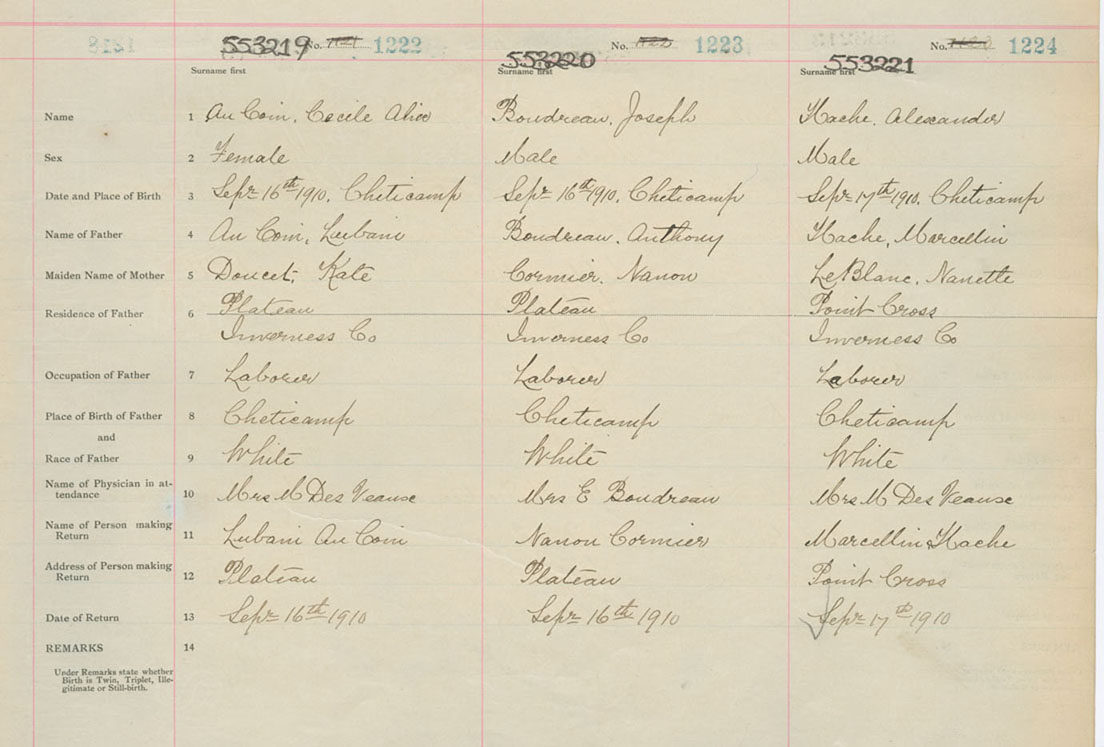 553219 No. 1222 553220 No. 1223 553221 No. 1224
Surname first Surname first Surname first
Name 1 Au Coin, Cecile Alice Boudreau, Joseph Hache, Alexander
Sex 2 Female Male Male
Date and Place of Birth 3 Sepr 16th 1910, Cheticamp Sepr 16th 1910, Cheticamp Sepr 17th 1910, Cheticamp
Name of Father 4 Au Coin, Lubani Boudreau, Anthony Hache, Marcellin
Maiden Name of Mother 5 Doucet, Kate Cormier, Nanon LeBlanc, Nanette
Residence of Father 6 Plateau Plateau Point Cross
Inverness Co Inverness Co Inverness Co
Occupation of Father 7 Laborer Laborer Laborer
Place of Birth of Father 8 Cheticamp Cheticamp Cheticamp
and
Race of Father 9 White White White
Name of Physician in at-
tendance 10 Mrs M Des Veause Mrs E Boudreau Mrs M Des Veause
Name of Person making
Return 11 Lubani Au Coin Nanon Cormier Marcellin Hache
Address of Person making
Return 12 Plateau Plateau Point Cross
Date of Return 13 Sepr 16th 1910 Sepr 16th 1910 Sepr 17th 1910
REMARKS 14
Under Remarks state whether
Birth is Twin, Triplet, Ille-
gitimate or Still-birth.